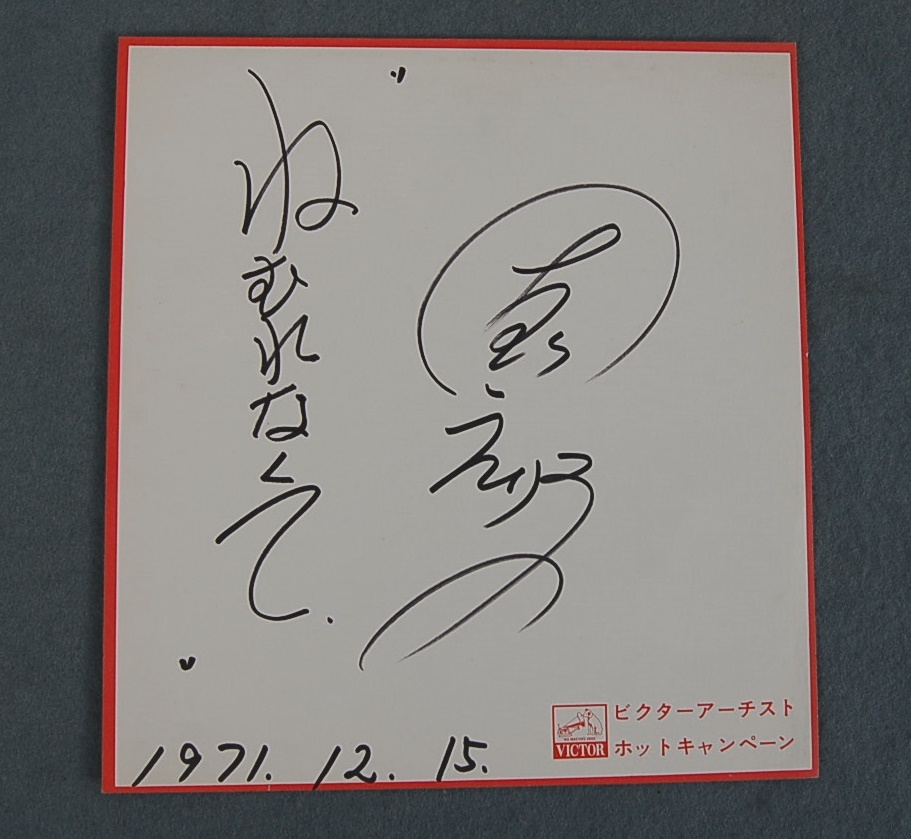 "ねむれなくて."
1971. 12. 15.
VICTOR
ビクターアーチスト
ホットキャンペーン